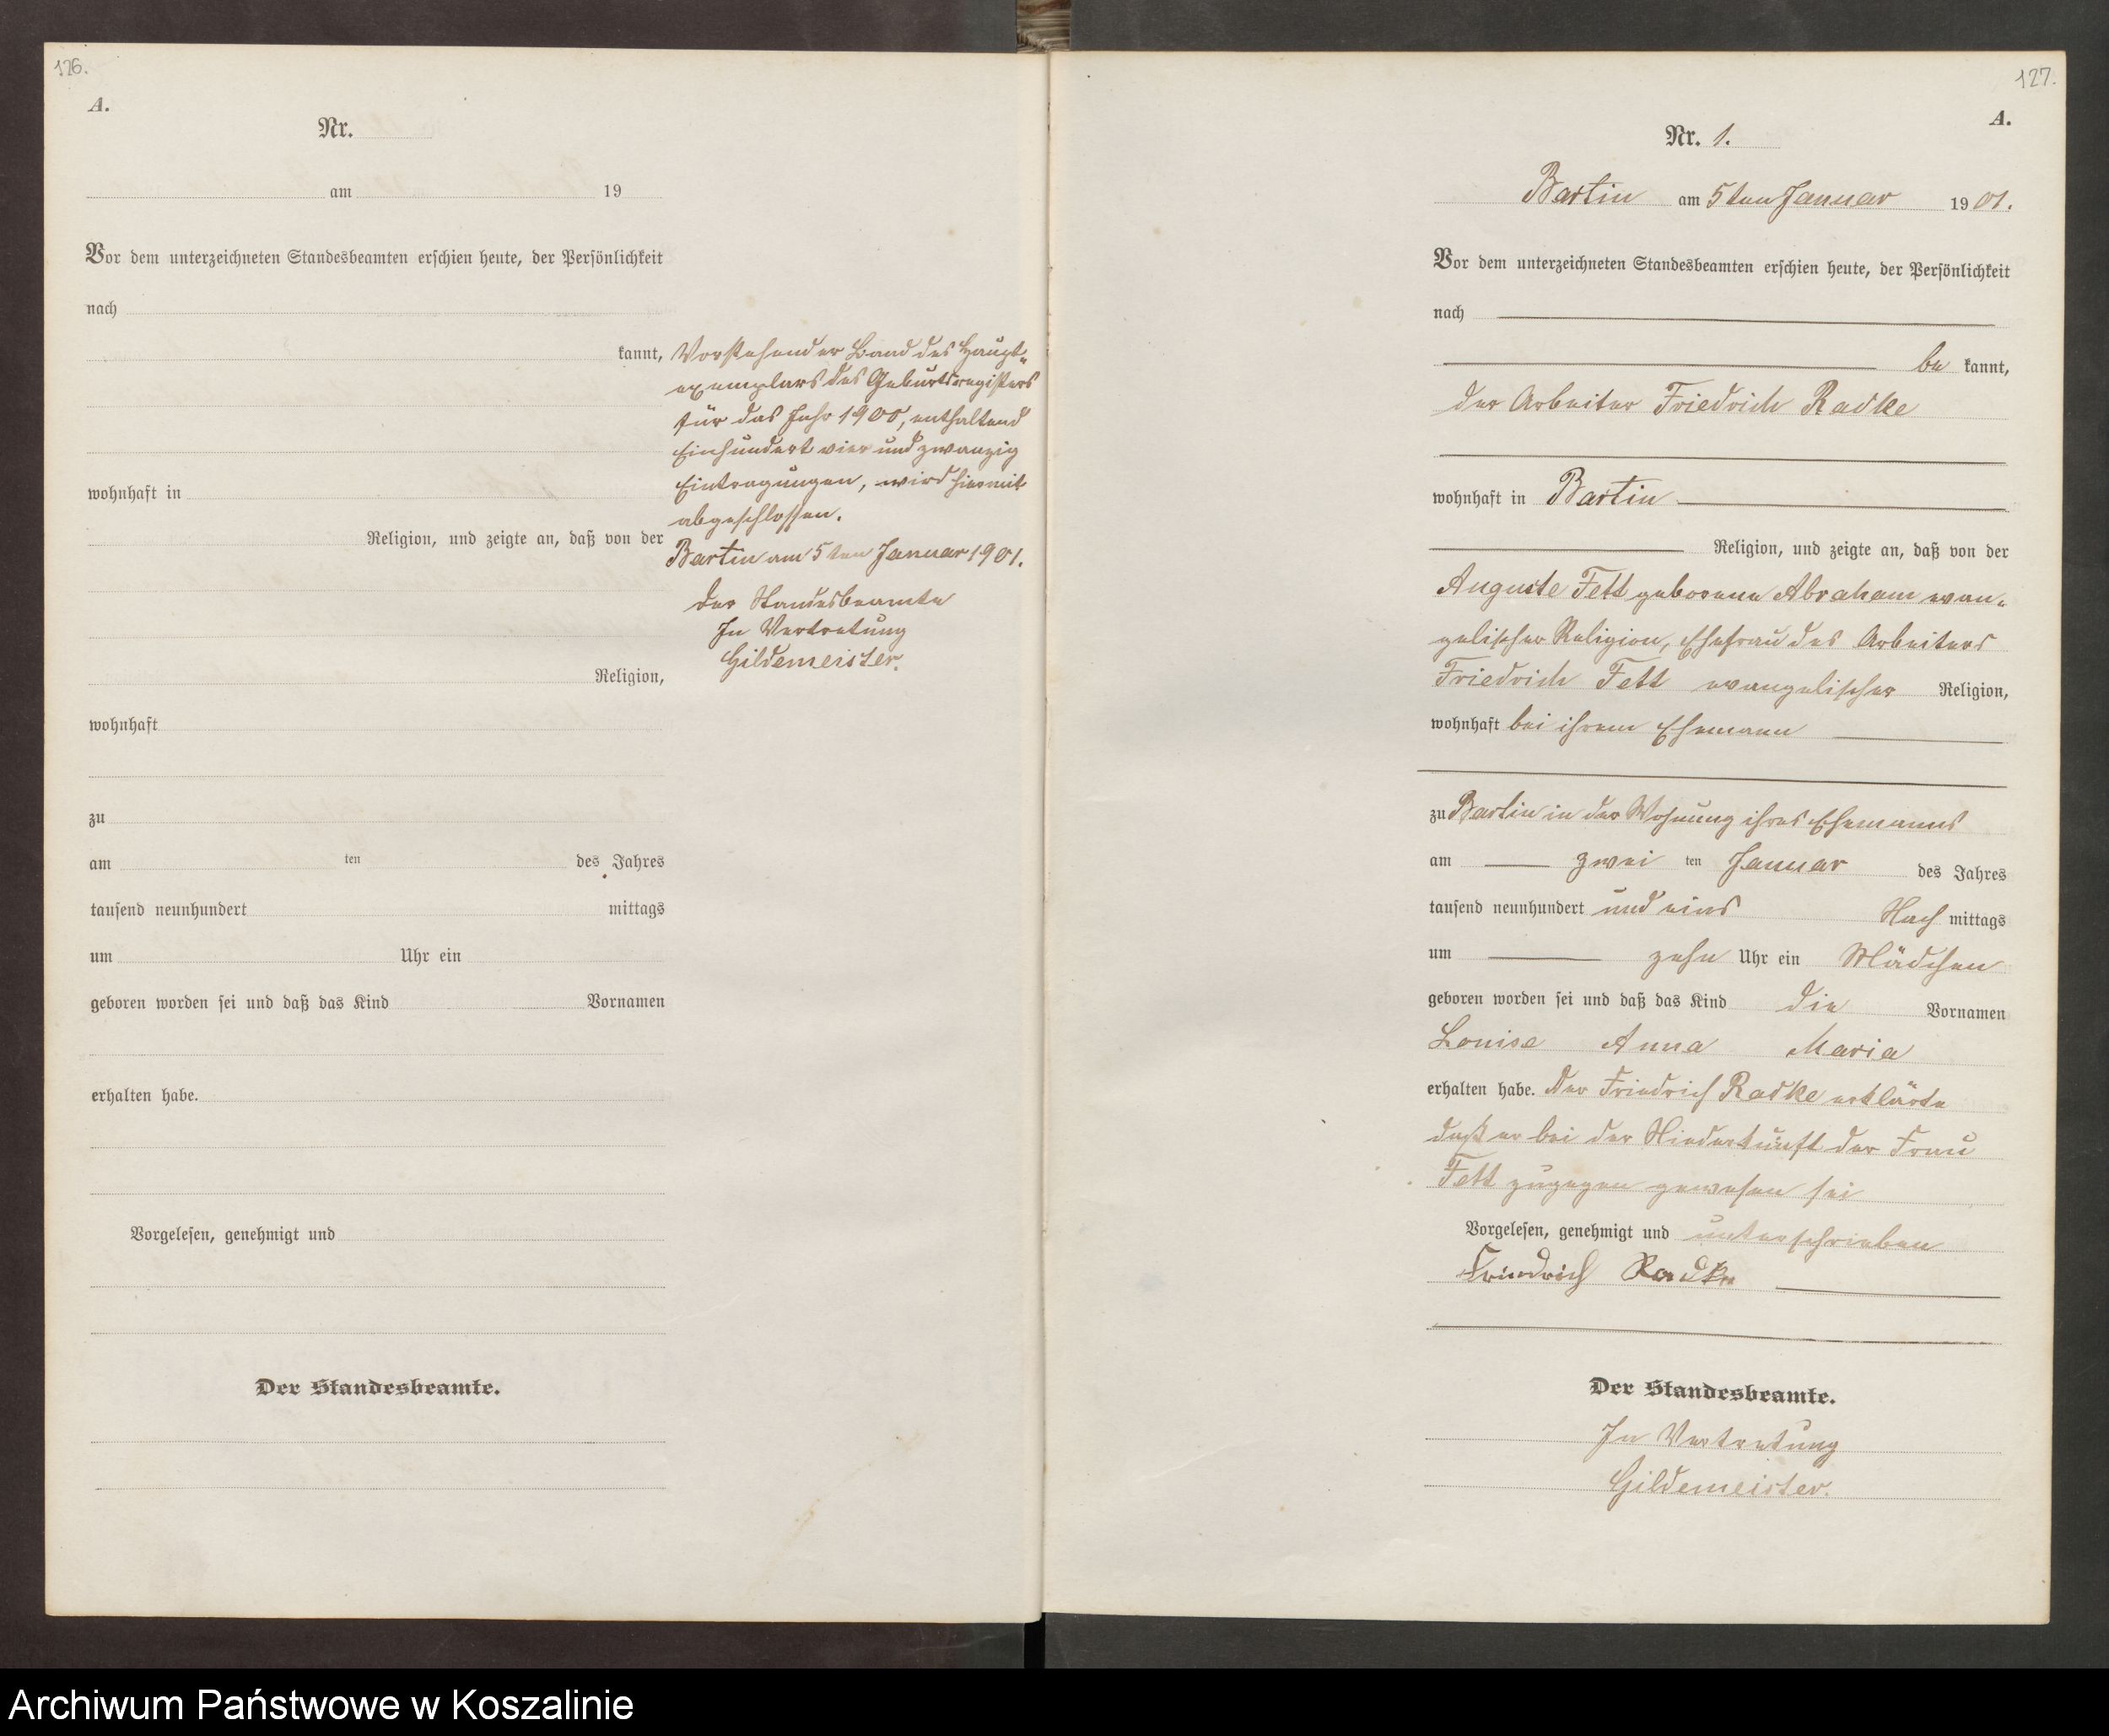 126.
A.
Nr.
am 19
Vor dem unterzeichneten Standesbeamten erschien heute, der Persönlichkeit
nach
kannt,
wohnhaft in
Religion, und zeigte an, daß von der
Religion,
wohnhaft
zu
am ten des Jahres
tausend neunhundert mittags
um Uhr ein
geboren worden sei und daß das Kind Vornamen
erhalten habe.
Vorgelesen, genehmigt und
Der Standesbeamte.
Vorstehender Band des Haupt-
exemplars des Geburtsregisters
für das Jahr 1900, enthaltend
Einhundert vier und zwanzig
Eintragungen, wird hiermit
abgeschlossen.
Bartin am 5ten Januar 1901.
Der Standesbeamte
In Vertretung
Gildemeister.
127.
A.
Nr. 1.
Bartin am 5ten Januar 1901.
Vor dem unterzeichneten Standesbeamten erschien heute, der Persönlichkeit
nach
be kannt,
der Arbeiter Friedrich Radke
wohnhaft in Bartin
Religion, und zeigte an, daß von der
Auguste Fett geborene Abraham evan-
gelischer Religion, Ehefrau des Arbeiters
Friedrich Fett evangelischer Religion,
wohnhaft bei ihrem Ehemann
zu Bartin in der Wohnung ihres Ehemanns
am zwei ten Januar des Jahres
tausend neunhundert und eins Nach mittags
um zehn Uhr ein Mädchen
geboren worden sei und daß das Kind die Vornamen
Louise Anna Maria
erhalten habe. Der Friedrich Radke erklärte
daß er bei der Niederkunft der Frau
Fett zugegen gewesen sei
Vorgelesen, genehmigt und unterschrieben
Friedrich Radke
Der Standesbeamte.
In Vertretung
Gildemeister.
Archiwum Państwowe w Koszalinie